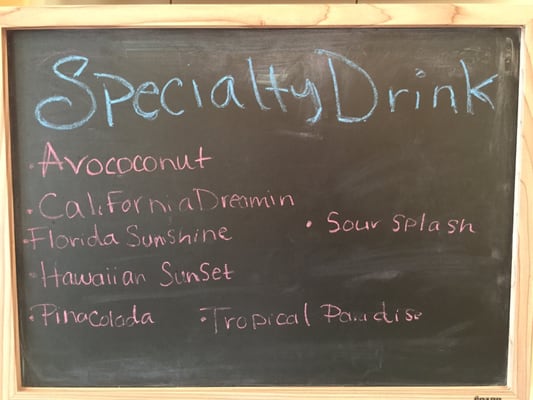 Specialty Drink
• Avococonut
• California Dreamin
• Florida Sunshine
• Sour Splash
• Hawaiian SunSet
• Pinacolada
• Tropical Paradise